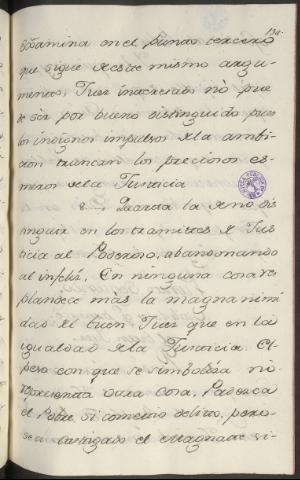 134.
Examina en el punto tercero
que sigue de este mismo argu-
mento. Juez interesado no pue
de ser por bueno distinguido pues
los indignos impulsos de la ambi
cion truncan los preciosos es-
meros de la Justicia
8... Quarta la de no dis
tinguir en los tramites de Jus
ticia al Poderoso, abandonando
al infeliz. En ninguna cosa res
plandece mas la magnanimi
dad del buen Juez que en la
igualdad de la Justicia. El
peso con que se simboliza no
representa otra cosa. Padezca
el Pobre si cometio delito, pero
sea castigado el Magnate si-